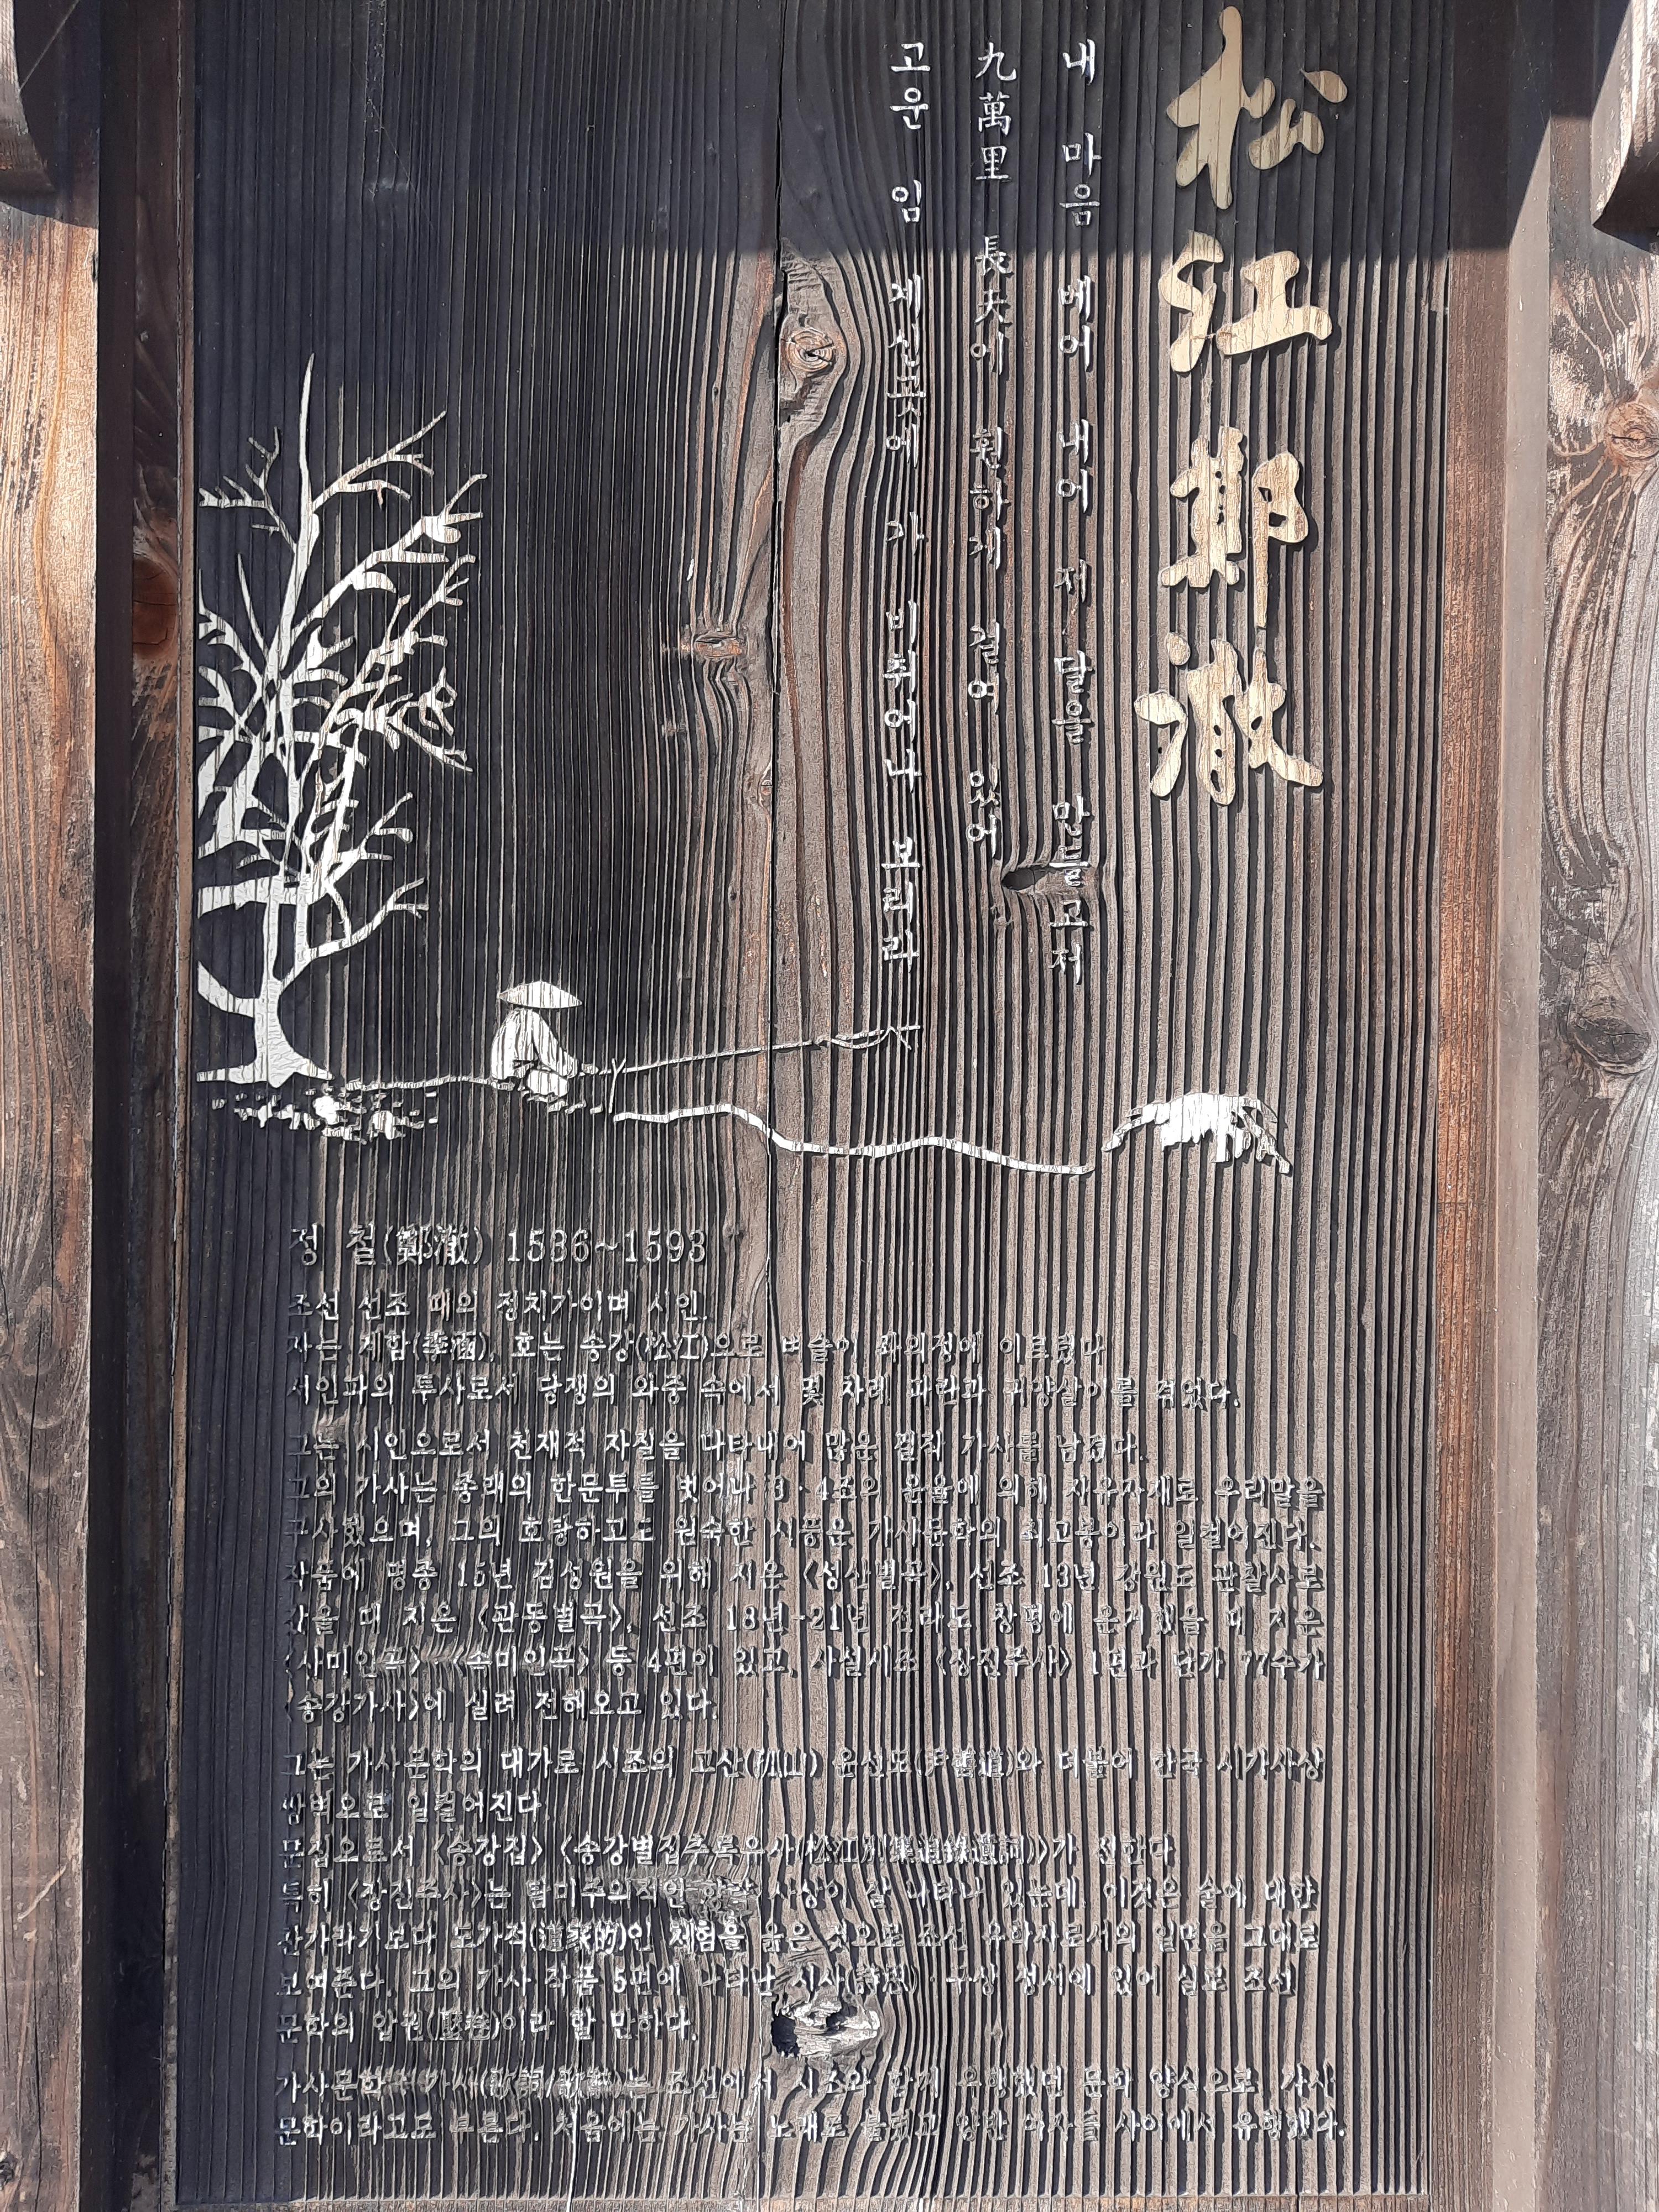 松江 鄭澈
내 마음 베어 내어 저 달을 만들고저
九萬里 長天에 훤하게 걸려 있어
고운 임 계신곳에 가 비취어나 보리라
정 철(鄭澈) 1536~1593
조선 선조 때의 정치가이며 시인.
자는 계함(季涵), 호는 송강(松江)으로 벼슬이 좌의정에 이르렀다
서인파의 투사로서 당쟁의 와중 속에서 몇 차례 파란과 귀양살이를 겪었다.
그는 시인으로서 천재적 자질을 나타내어 많은 걸작 가사를 남겼다.
그의 가사는 종래의 한문투를 벗어나 3·4조의 운율에 의해 자유자재로 우리말을
구사했으며, 그의 호탕하고도 원숙한 시풍은 가사문학의 최고봉이라 일컬어진다.
작품에 명종 15년 김성원을 위해 지은 <성산별곡>, 선조 13년 강원도 관찰사로
갔을 때 지은 <관동별곡>, 선조 18년~21년 전라도 창평에 은거했을 때 지은
<사미인곡> <속미인곡> 등 4편이 있고, 사설시조 <장진주사> 1편과 단가 77수가
<송강가사>에 실려 전해오고 있다.
그는 가사문학의 대가로 시조의 고산(孤山) 윤선도(尹善道)와 더불어 한국 시가사상
쌍벽으로 일컬어진다.
문집으로서 <송강집> <송강별집추록유사(松江別集追錄遺詞)>가 전한다
특히 <장진주사>는 탐미주의적인 사상이 잘 나타나 있는데, 이것은 술에 대한
찬가라기보다 도가적(道家的)인 체험을 읊은 것으로 조선 유학자로서의 일면을 그대로
보여준다. 그의 가사 작품 5편에 나타난 시사(詩想)·구상 정서에 있어 실로 조선
문학의 압권(壓卷)이라 할 만하다.
가사문학 - 가사(歌詞/歌辭)는 조선에서 시조와 함께 유행했던 문학 양식으로, 가사
문학이라고도 부른다. 처음에는 가사는 노래로 불렸고 양반 여자들 사이에서 유행했다.